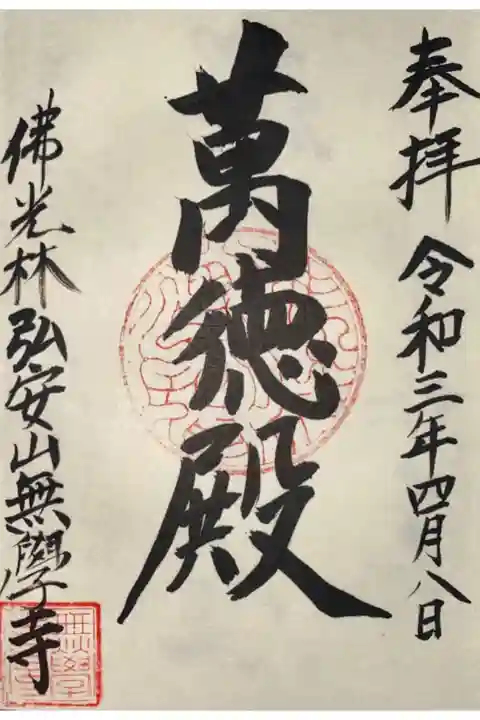 奉拝 令和三年四月八日
萬徳殿
佛光林弘安山無學寺